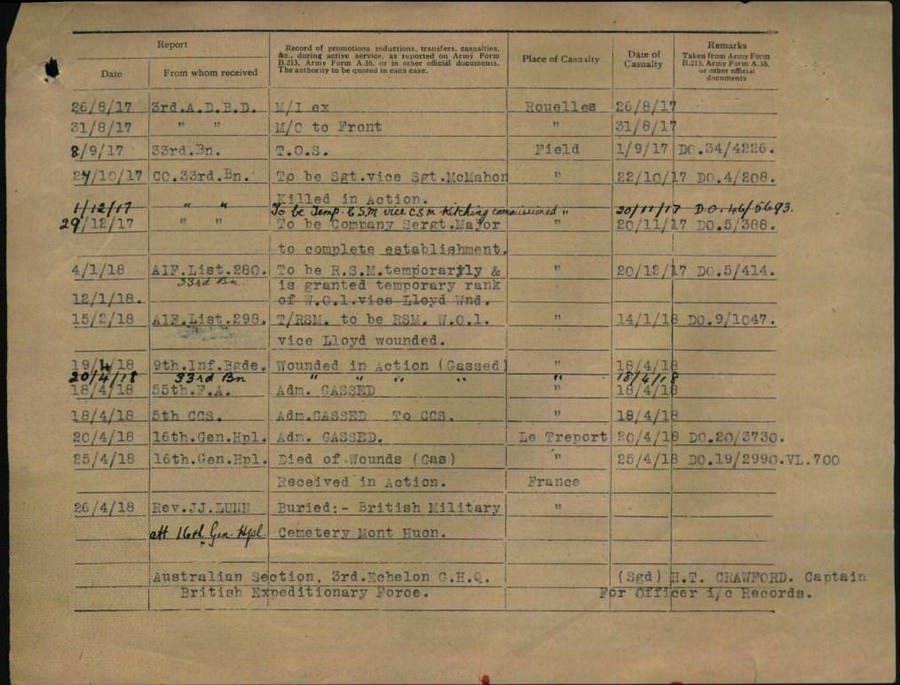 Report
Record of promotions, reductions, transfers, casualties, &c., during active service, as reported on Army Form B.213, Army Form A.36, or in other official documents. The authority to be quoted in each case.
Place of Casualty
Date of Casualty
Remarks
Taken from Army Form B.213, Army Form A.36, or other official documents
Date From whom received
26/8/17 3rd.A.D.B.D. M/I ex Rouelles 26/8/17
31/8/17 " " M/C to Front " 31/8/17
8/9/17 33rd.Bn. T.O.S. Field 1/9/17 DO.34/4226.
27/10/17 CO.33rd.Bn. To be Sgt.vice Sgt.McMahon " 22/10/17 DO.4/208.
Killed in Action.
1/12/17 " " To be Temp C.S.M vice C.S.M Kitching commissioned " 20/11/17 DO.46/5693.
29/12/17 " " To be Company Sergt.Major " 20/11/17 DO.5/388.
to complete establishment.
4/1/18 AIF.List.280. To be R.S.M.temporarily & " 20/12/17 DO.5/414.
33rd Bn is granted temporary rank
12/1/18. of W.O.1.vice Lloyd Wnd.
15/2/18 AIF.List.298. T/RSM. to be RSM. W.O.1. " 14/1/18 DO.9/1047.
vice Lloyd wounded.
19/4/18 9th.Inf.Bgde. Wounded in Action (Gassed) " 18/4/18
20/4/18 33rd Bn " " " " " 18/4/18
18/4/18 55th.F.A. Adm. GASSED " 18/4/18
18/4/18 5th CCS. Adm.GASSED To CCS. " 18/4/18
20/4/18 16th.Gen.Hpl. Adm. GASSED. Le Treport 20/4/18 DO.20/3730.
25/4/18 16th.Gen.Hpl. Died of Wounds (Gas) " 25/4/18 DO.19/2990.VL.700
Received in Action. France
26/4/18 Rev.JJ.LUNN Buried:- British Military "
att 16th Gen. Hpl Cemetery Mont Huon.
Australian Section, 3rd.Echelon G.H.Q. (Sgd) H.T. CRAWFORD. Captain
British Expeditionary Force. For Officer i/c Records.